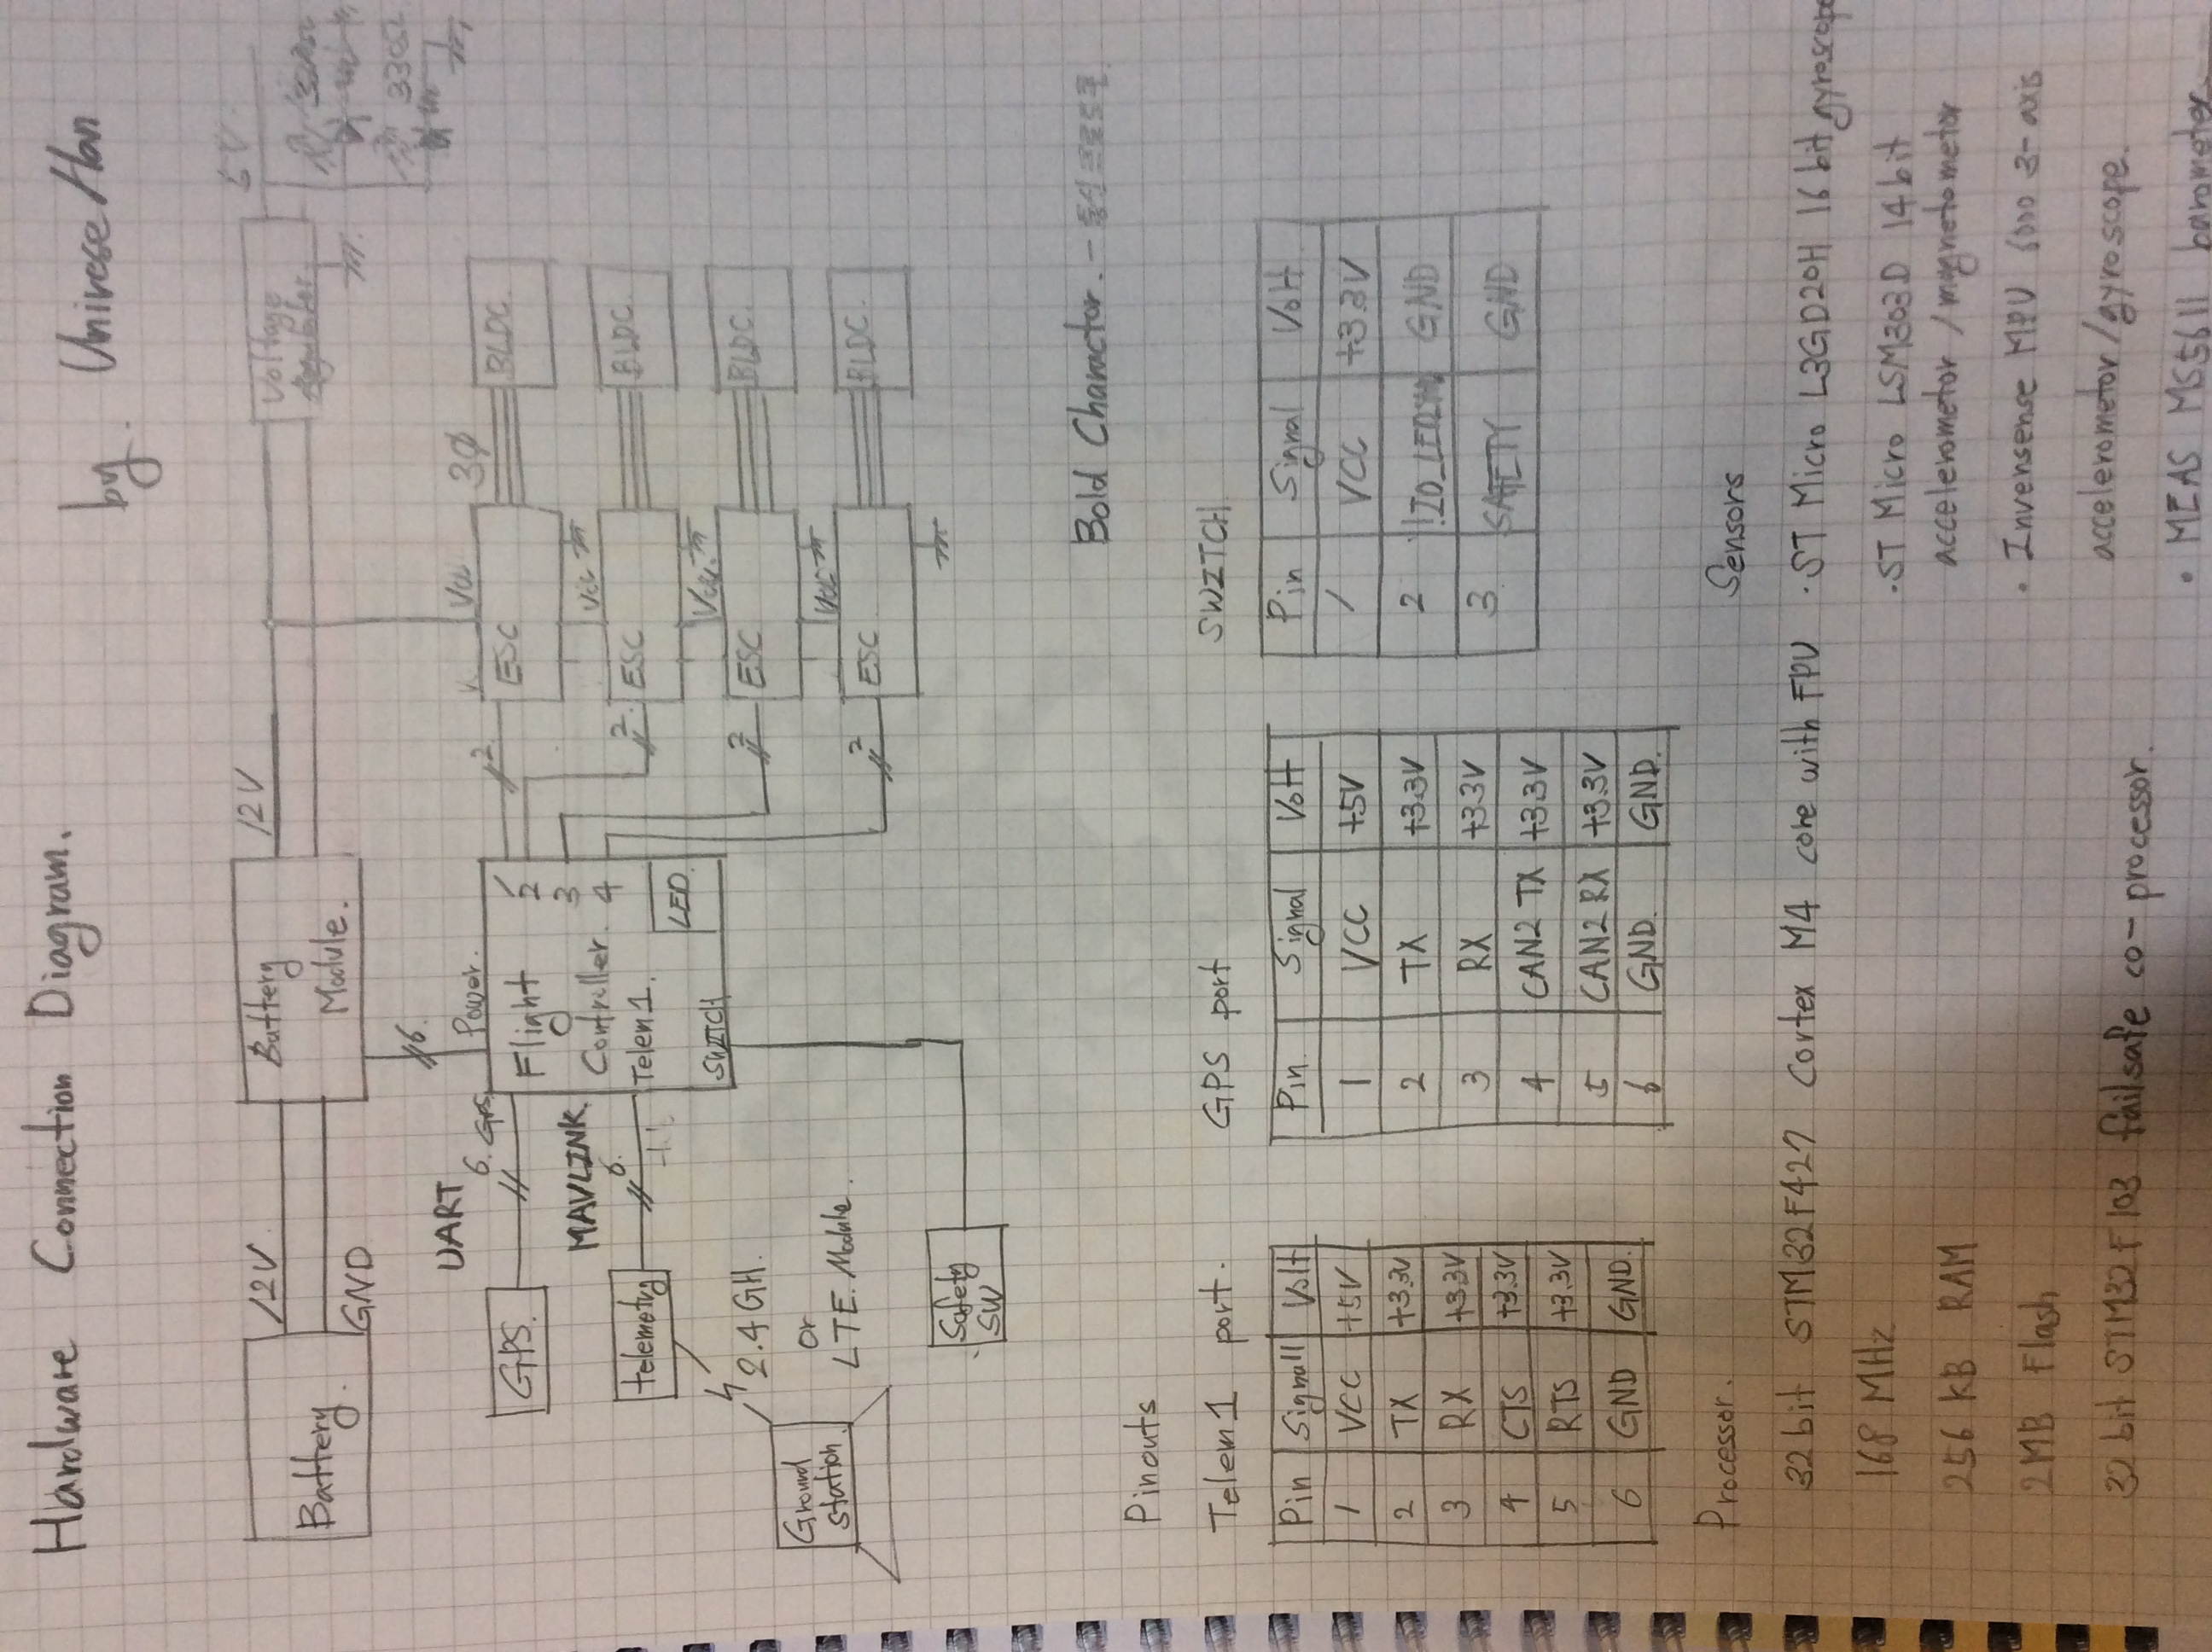 Hardware Connection Diagram.
by. Univese Han
Battery.
12V
GND
Battery
Module.
12V
Voltage
Regulator
5V
330Ω
330Ω
6
UART
6. GPS
Power.
GPS.
Flight
Controller.
1
2
3
4
MAVLINK.
6.
telemetry
Telem1.
LED.
SWITCH
2.4 GH.
or
LTE. Module.
Ground
station.
Safety
SW
2
Vcc
ESC
3Ø
BLDC.
2
Vcc
ESC
BLDC.
2
Vcc
ESC
BLDC.
2
Vcc
ESC
BLDC.
Bold Charactor. - 통신 프로토콜
Pinouts
Telem1 port.
Pin Signall Volt
1 VCC +5V
2 TX +3.3V
3 RX +3.3V
4 CTS +3.3V
5 RTS +3.3V
6 GND GND.
GPS port
Pin. Signal Volt
1 VCC +5V
2 TX +3.3V
3 RX +3.3V
4 CAN2 TX +3.3V
5 CAN2 RX +3.3V
6 GND. GND.
SWITCH
Pin Signal Volt
1 VCC +3.3V
2 GND
3 SAFETY GND
Processor.
32 bit STM32F427 Cortex M4 core with FPU
168 MHz
256 KB RAM
2MB Flash
32 bit STM32F103 failsafe co-processor.
Sensors
·ST Micro L3GD20H 16 bit gyroscope
·ST Micro LSM303D 14 bit
accelerometor / magnetometor
· Invensense MPU 6000 3-axis
accelerometor / gyroscope.
· MEAS MS5611 barometer